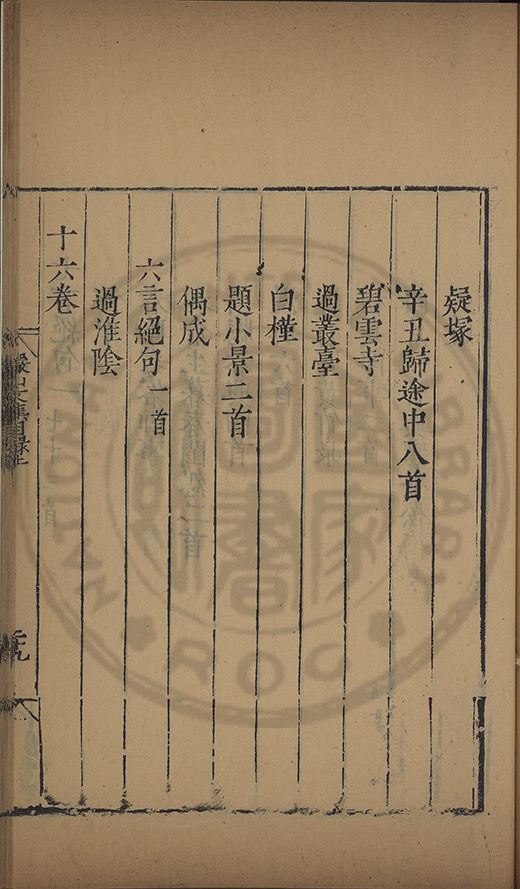 疑塚
辛丑歸途中八首
碧雲寺
過叢臺
白槿
題小景二首
偶成
六言絕句一首
過淮陰
十六卷